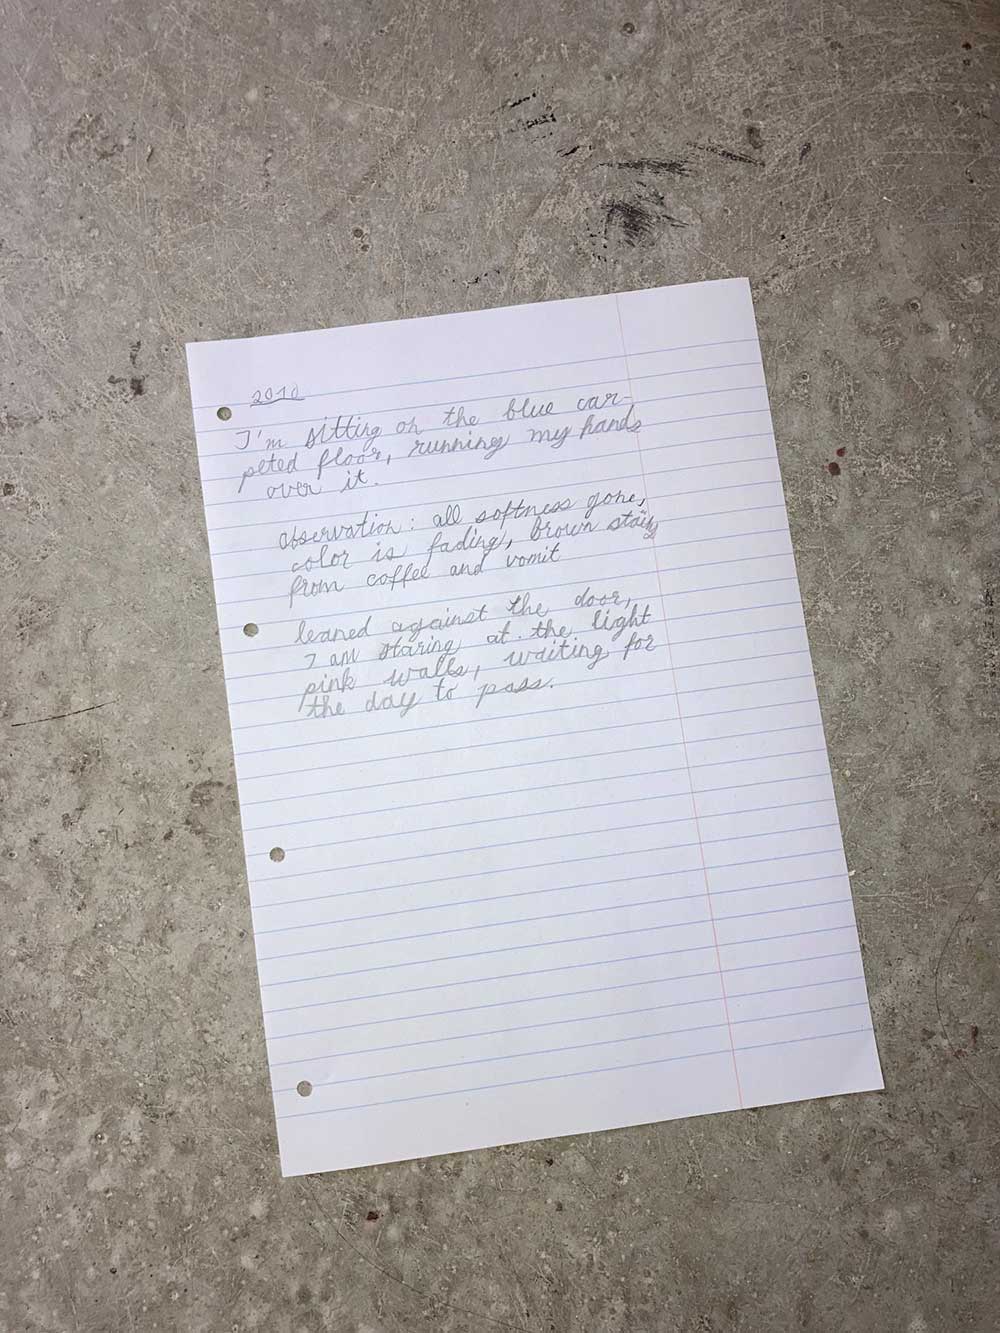 2010
I'm sitting on the blue car-
peted floor, running my hands
over it.
observation: all softness gone,
color is fading, brown stains
from coffee and vomit
leaned against the door,
I am staring at the light
pink walls, waiting for
the day to pass.